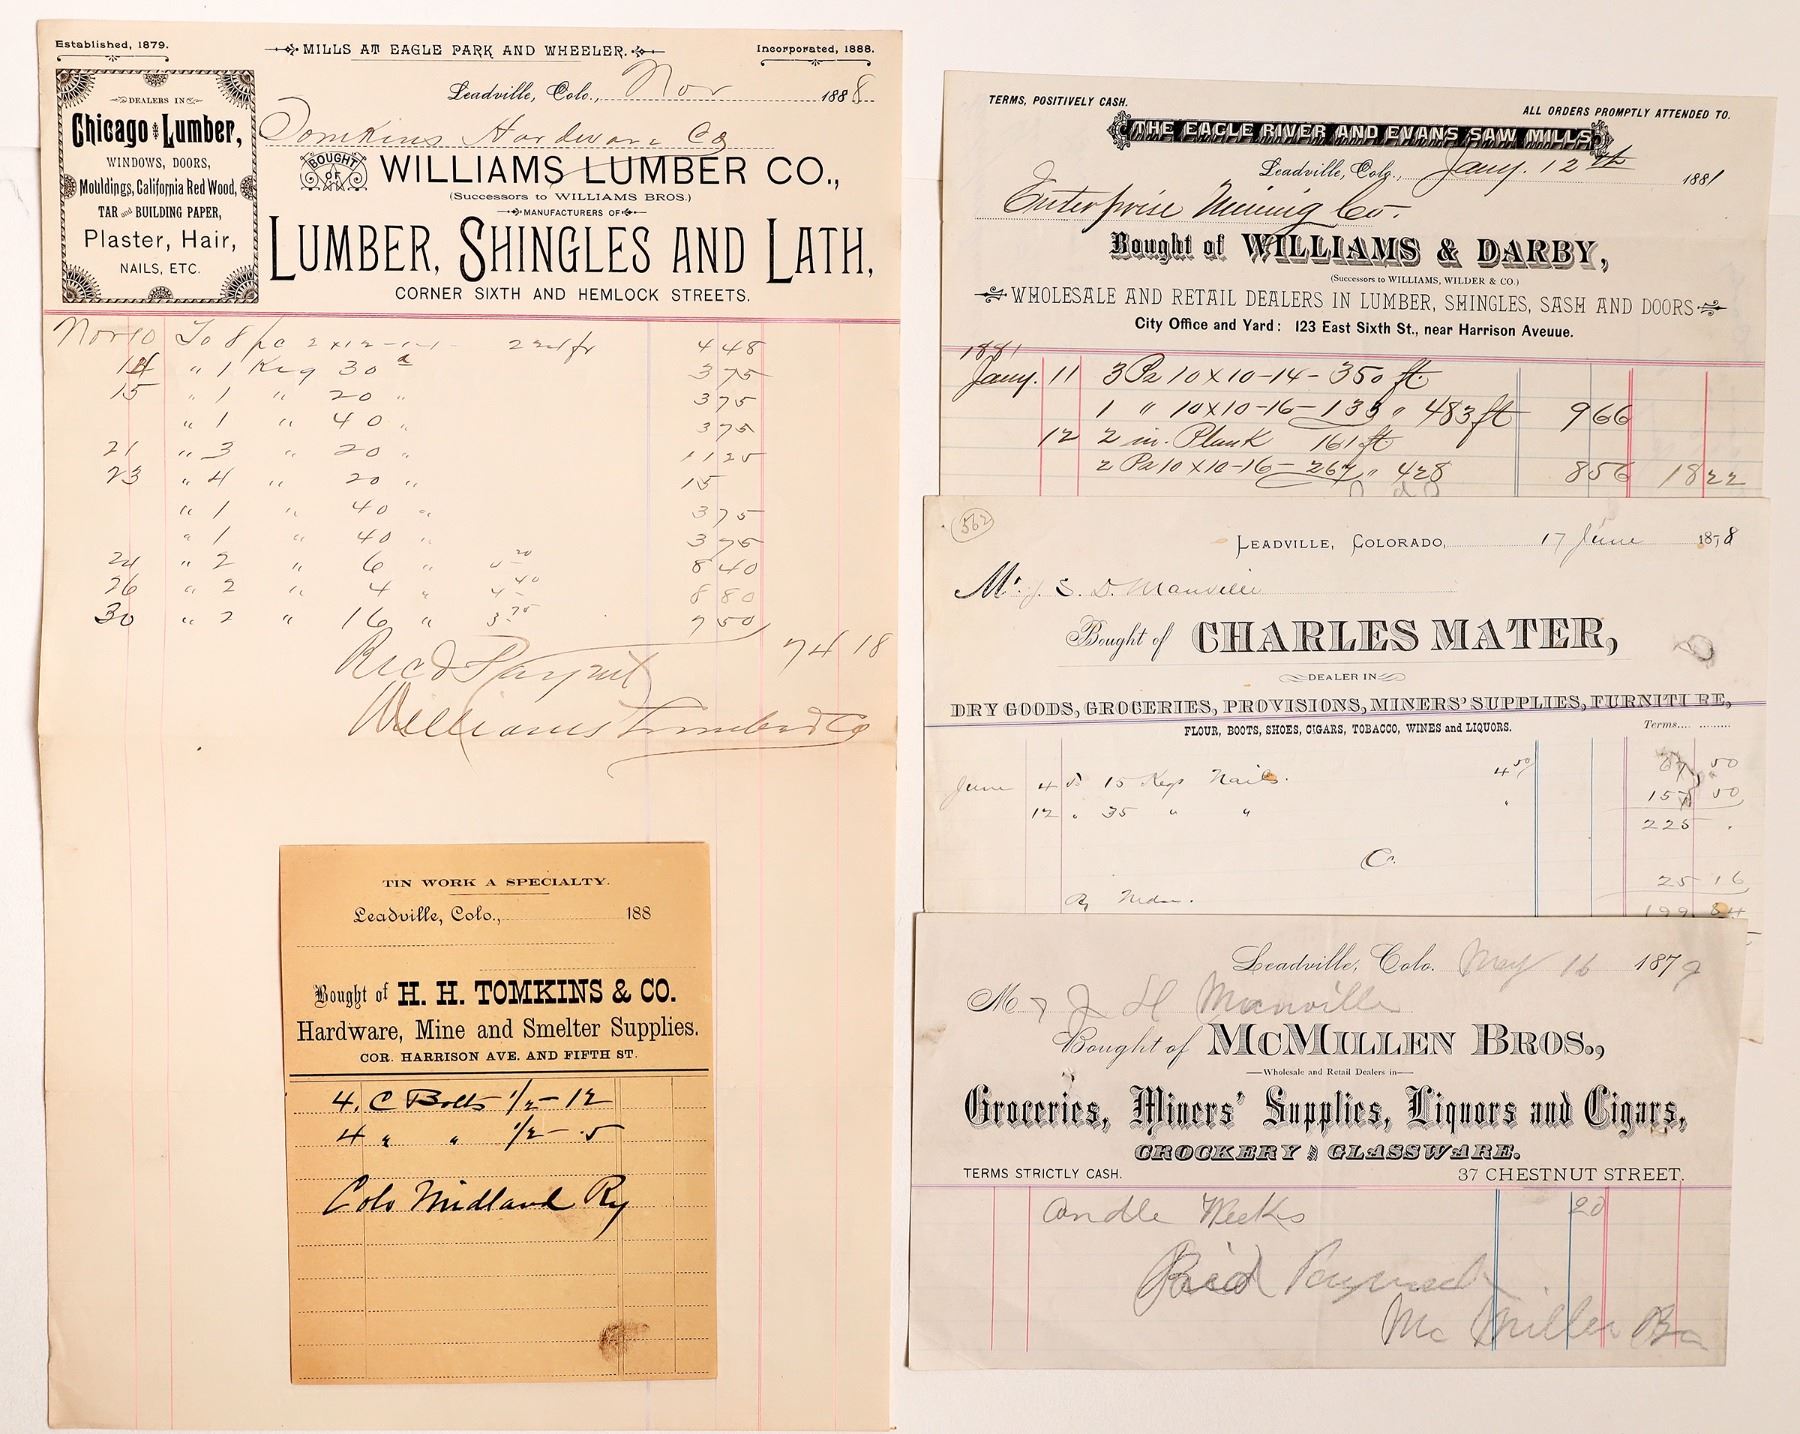 Established, 1879.
MILLS AT EAGLE PARK AND WHEELER.
Incorporated, 1888.
Leadville, Colo., Nov 1888
DEALERS IN
Chicago Lumber,
WINDOWS, DOORS,
Mouldings, California Red Wood,
TAR and BUILDING PAPER,
Plaster, Hair,
NAILS, ETC.
Tomkins Hardware Co
BOUGHT OF WILLIAMS LUMBER CO.,
(Successors to WILLIAMS BROS.)
MANUFACTURERS OF
LUMBER, SHINGLES AND LATH,
CORNER SIXTH AND HEMLOCK STREETS.
Nov 10 To 8 pc 2 x 12 224 fr 4 48
14 " 1 Keg 30 d 3 75
15 " 1 " 20 " 3 75
" 1 " 40 " 3 75
21 " 3 " 20 " 11 25
23 " 4 " 20 " 15
" 1 " 40 " 3 75
" 1 " 40 " 3 75
24 " 2 " 6 " 4 20 8 40
26 " 2 " 4 " 4 40 8 80
30 " 2 " 16 " 3 75 7 50
74 18
Recd Paymt
Williams Lumber Co
TIN WORK A SPECIALTY.
Leadville, Colo., 188
Bought of H. H. TOMKINS & CO.
Hardware, Mine and Smelter Supplies.
COR. HARRISON AVE. AND FIFTH ST.
4. C Bolts 1/2 - 12
4 " " 1/2 - 5
Colo Midland Ry
TERMS, POSITIVELY CASH.
ALL ORDERS PROMPTLY ATTENDED TO.
THE EAGLE RIVER AND EVANS SAW MILLS
Leadville, Colo., Jany. 12th 1881
Enterprise Mining Co.
Bought of WILLIAMS & DARBY,
(Successors to WILLIAMS, WILDER & CO.)
WHOLESALE AND RETAIL DEALERS IN LUMBER, SHINGLES, SASH AND DOORS
City Office and Yard: 123 East Sixth St., near Harrison Aveuue.
1881
Jany. 11 3 Pz 10 x 10 - 14 - 350 ft.
1 " 10 x 10 - 16 - 133 " 483 ft 9 66
12 2 in. Plank 161 ft
2 Pz 10 x 10 - 16 - 267 " 428 8 56 18 22
562
LEADVILLE, COLORADO, 17 June 1878
Mr. J. S. D. Manville
Bought of CHARLES MATER,
DEALER IN
DRY GOODS, GROCERIES, PROVISIONS, MINERS' SUPPLIES, FURNITURE,
FLOUR, BOOTS, SHOES, CIGARS, TOBACCO, WINES and LIQUORS.
Terms
June 4 15 Kegs Nails. 4 50 67 50
12 " 35 " " " 157 50
225 .
Cr.
25 16
By
199 84
Leadville, Colo. May 16 1879
M J H Manville
Bought of McMILLEN BROS.,
Wholesale and Retail Dealers in
Groceries, Miners' Supplies, Liquors and Cigars,
CROCKERY & GLASSWARE.
TERMS STRICTLY CASH.
37 CHESTNUT STREET.
Candle Wicks 20
Recd Payment
Mc Millen Bro